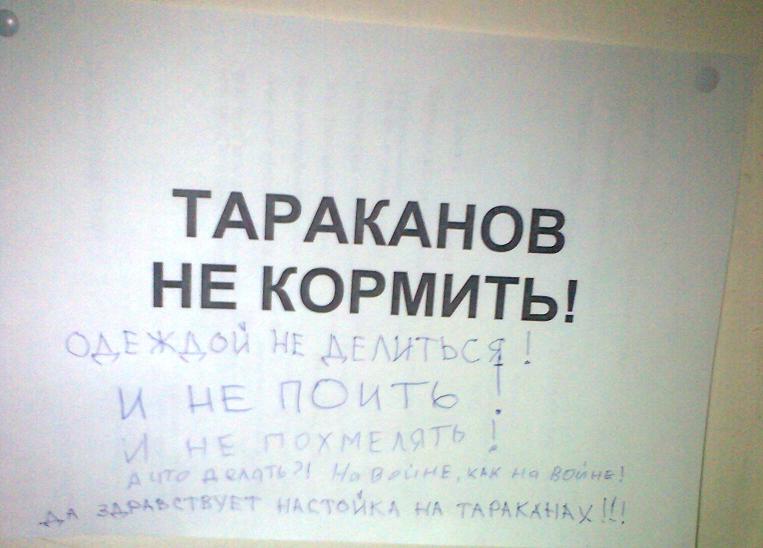 ТАРАКАНОВ
НЕ КОРМИТЬ!
ОДЕЖДОЙ НЕ ДЕЛИТЬСЯ!
И НЕ ПОИТЬ!
И НЕ ПОХМЕЛЯТЬ!
А ЧТО ДЕЛАТЬ?! НА ВОЙНЕ, КАК НА ВОЙНЕ!
ДА ЗДРАВСТВУЕТ НАСТОЙКА НА ТАРАКАНАХ!!!